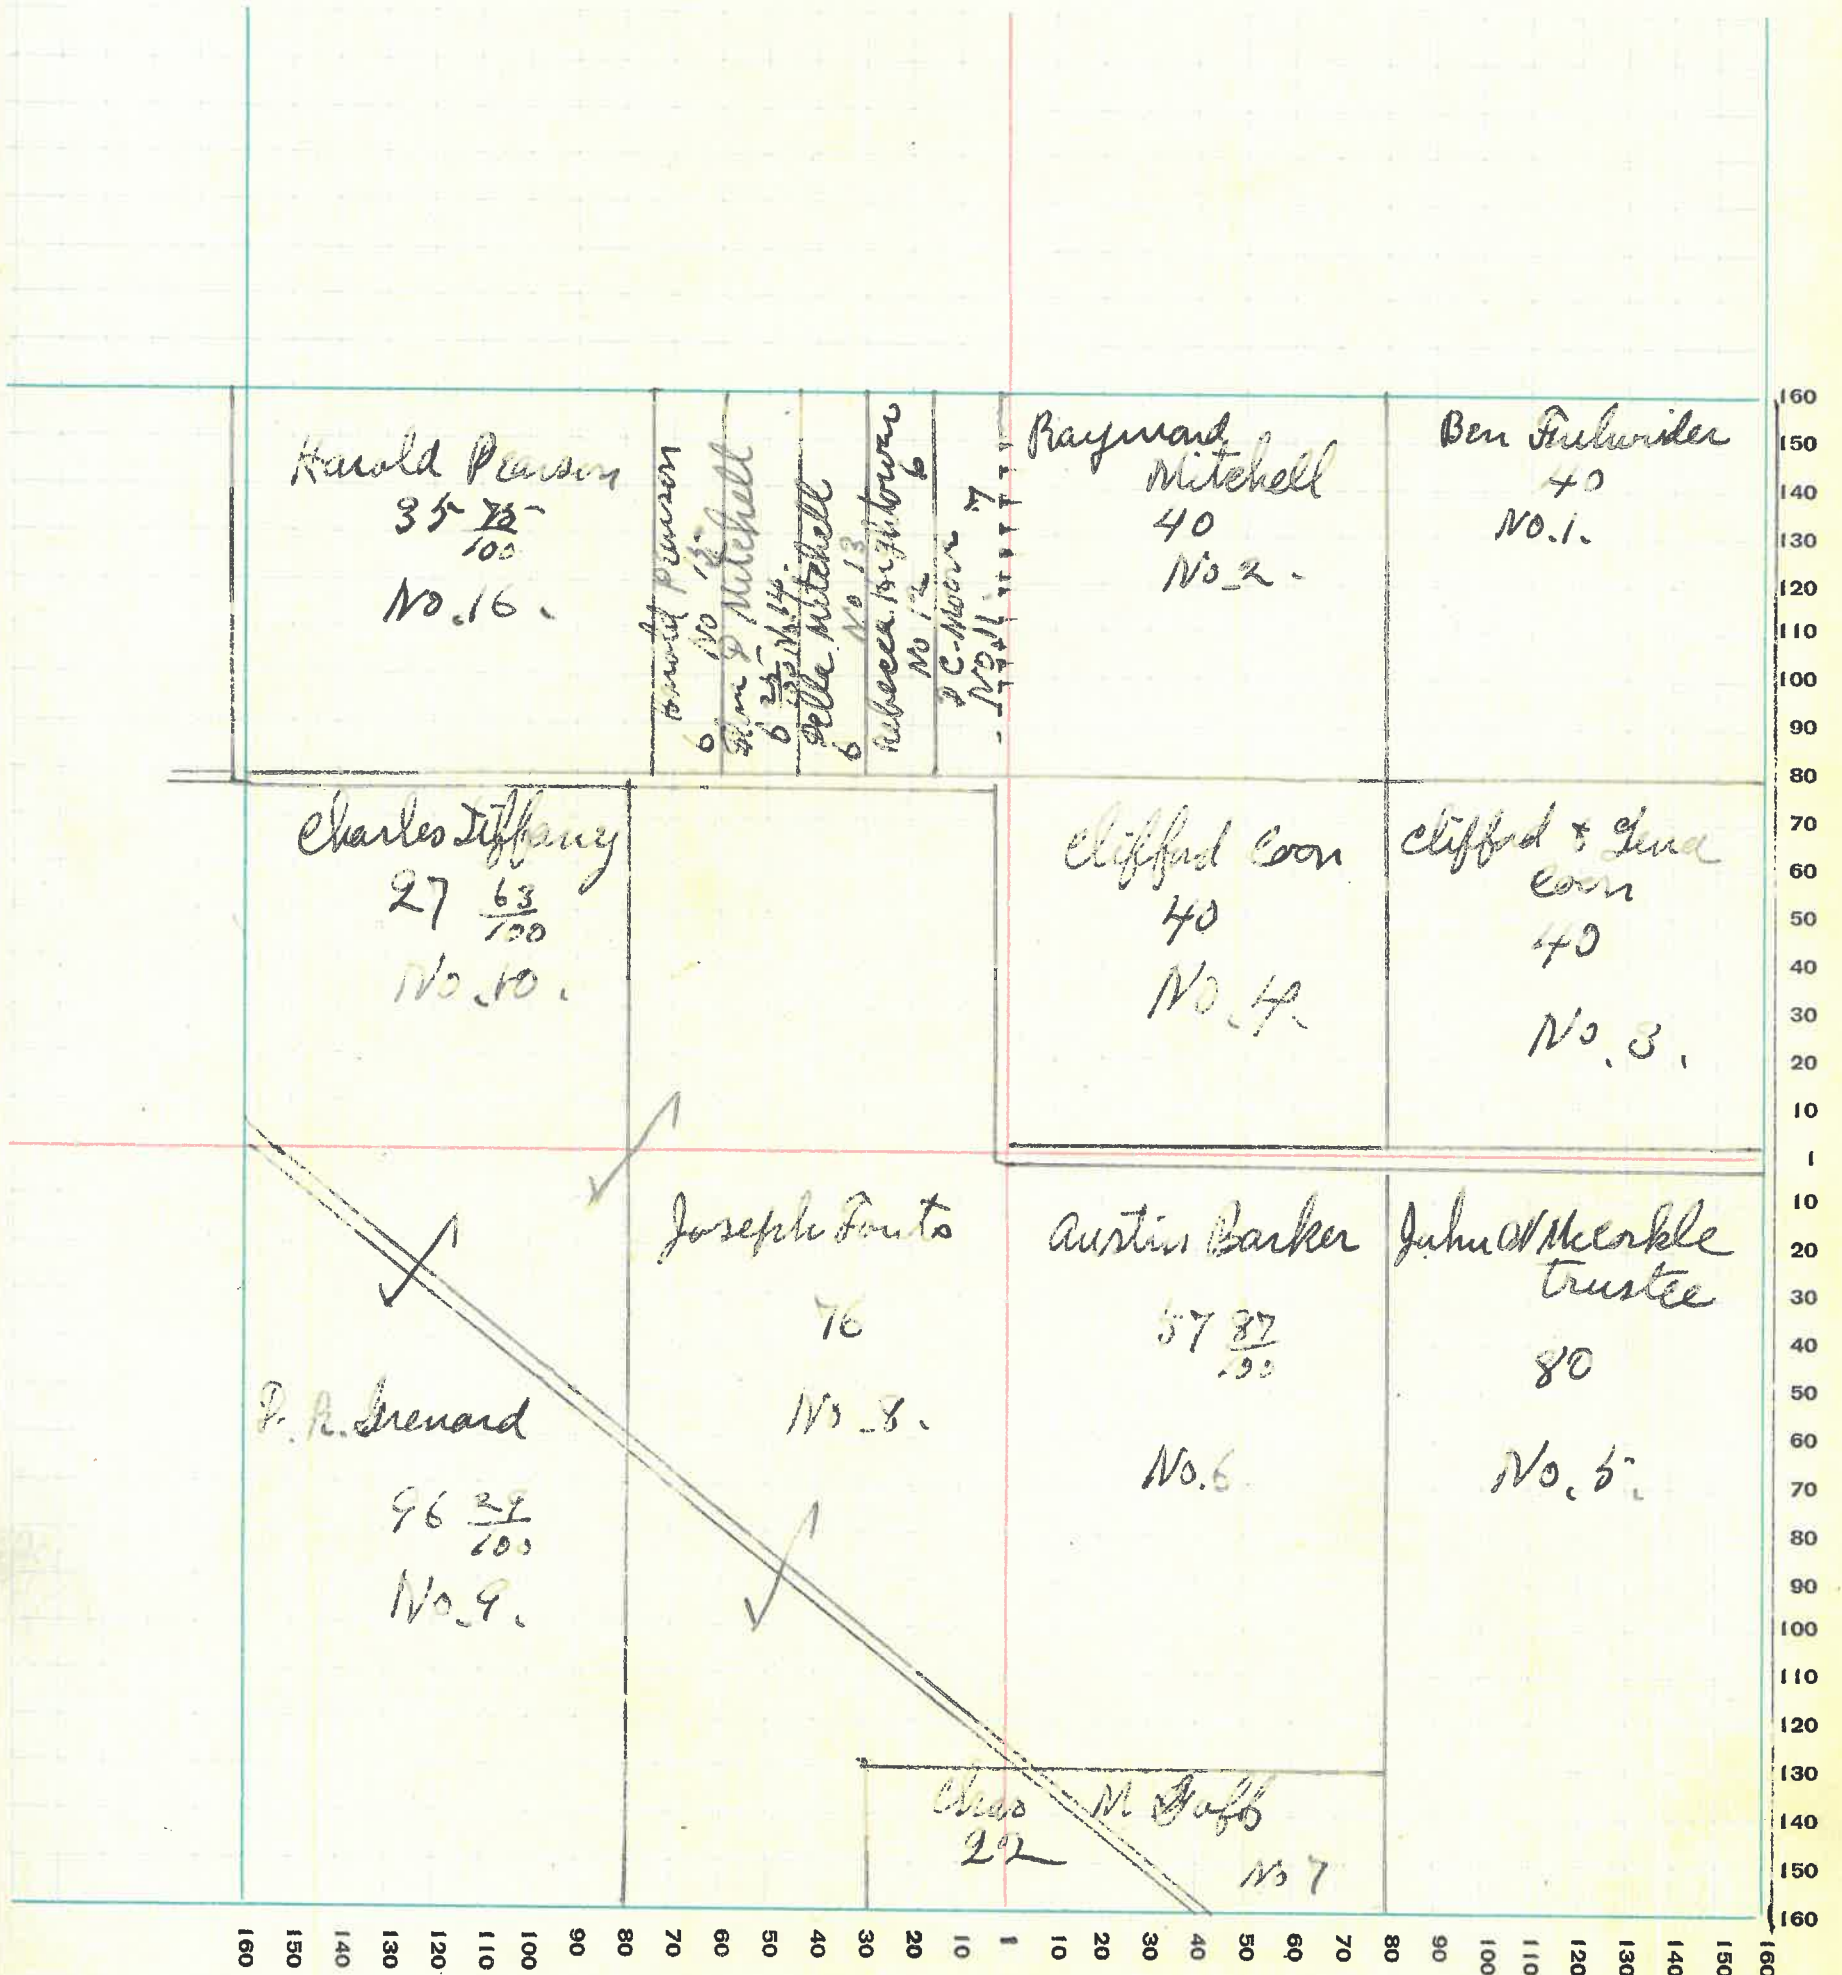 Harold Pearson
35 75/100
No. 16.
Harold Pearson
6 No 15
Mitchell
6 25/100 No 14.
Della Mitchell
6 No 13
Rebecca Hightower 6
No 12
P C Moore 7
No 11.
Raymond
Mitchell
40
No 2.
Ben Fulwider
40
No. 1.
Charles Tiffany
27 63/100
No. 10.
Clifford Coon
40
No. 4.
Clifford & Lena
Coon
40
No. 3.
Joseph Fouts
76
No. 8.
Austin Barker
57 87/100
No. 6
John N McCorkle
trustee
80
No. 5.
P. R. Grenard
96 29/100
No. 9.
Chas M Goff
22
No 7
160
150
140
130
120
110
100
90
80
70
60
50
40
30
20
10
1
10
20
30
40
50
60
70
80
90
100
110
120
130
140
150
160
160 150 140 130 120 110 100 90 80 70 60 50 40 30 20 10 1 10 20 30 40 50 60 70 80 90 100 110 120 130 140 150 160